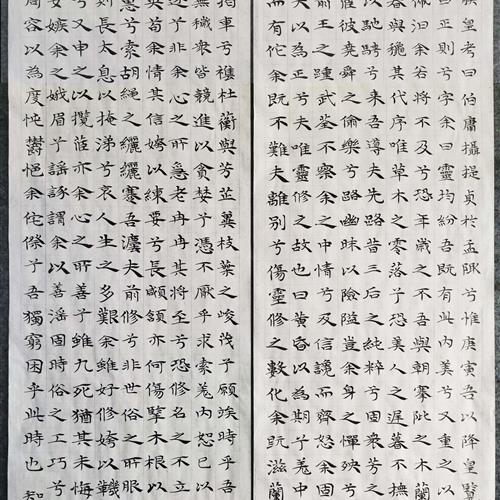 皇考曰伯庸攝提貞於孟陬兮惟庚寅吾以降皇覽
曰正則兮字余曰靈均紛吾既有此內美兮又重之以
佩汩余若將不及兮恐年歲之不吾與朝搴阰之木
春與秋其代序唯草木之零落兮恐美人之遲暮不撫
以馳騁兮來吾導夫先路昔三后之純粹兮固衆芳
彼堯舜之偷樂兮路幽昧以險隘豈余身之憚殃兮
前王之踵武荃不察余之中情兮反信讒而齌怒余固
余以為正兮夫唯靈修之故也曰黃昏以為期兮羌中
而有佗余既不難夫離別兮傷靈修之數化余既滋蘭
揭車兮襍杜蘅與芳芷冀枝葉之峻茂兮願竢時乎吾
蕪穢衆皆競進以貪婪兮憑不厭乎求索羌內恕己以
逐兮非余心之所急老冉冉其將至兮恐修名之不立
英苟余情其信姱以練要兮長顑頷亦何傷擥木根以
蕙兮索胡繩之纚纚謇吾灋夫前修兮非世俗之所服
則長太息以掩涕兮哀人生之多艱余雖好修姱以鞿
兮又申之以攬茝亦余心之所善兮雖九死猶其未悔
女嫉余之蛾眉兮謠諑謂余以善淫固時俗之工巧兮
周容以為度忳鬱悒余侘傺兮吾獨窮困乎此時也